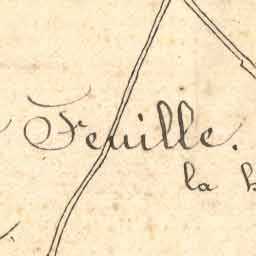 Feuille.
la